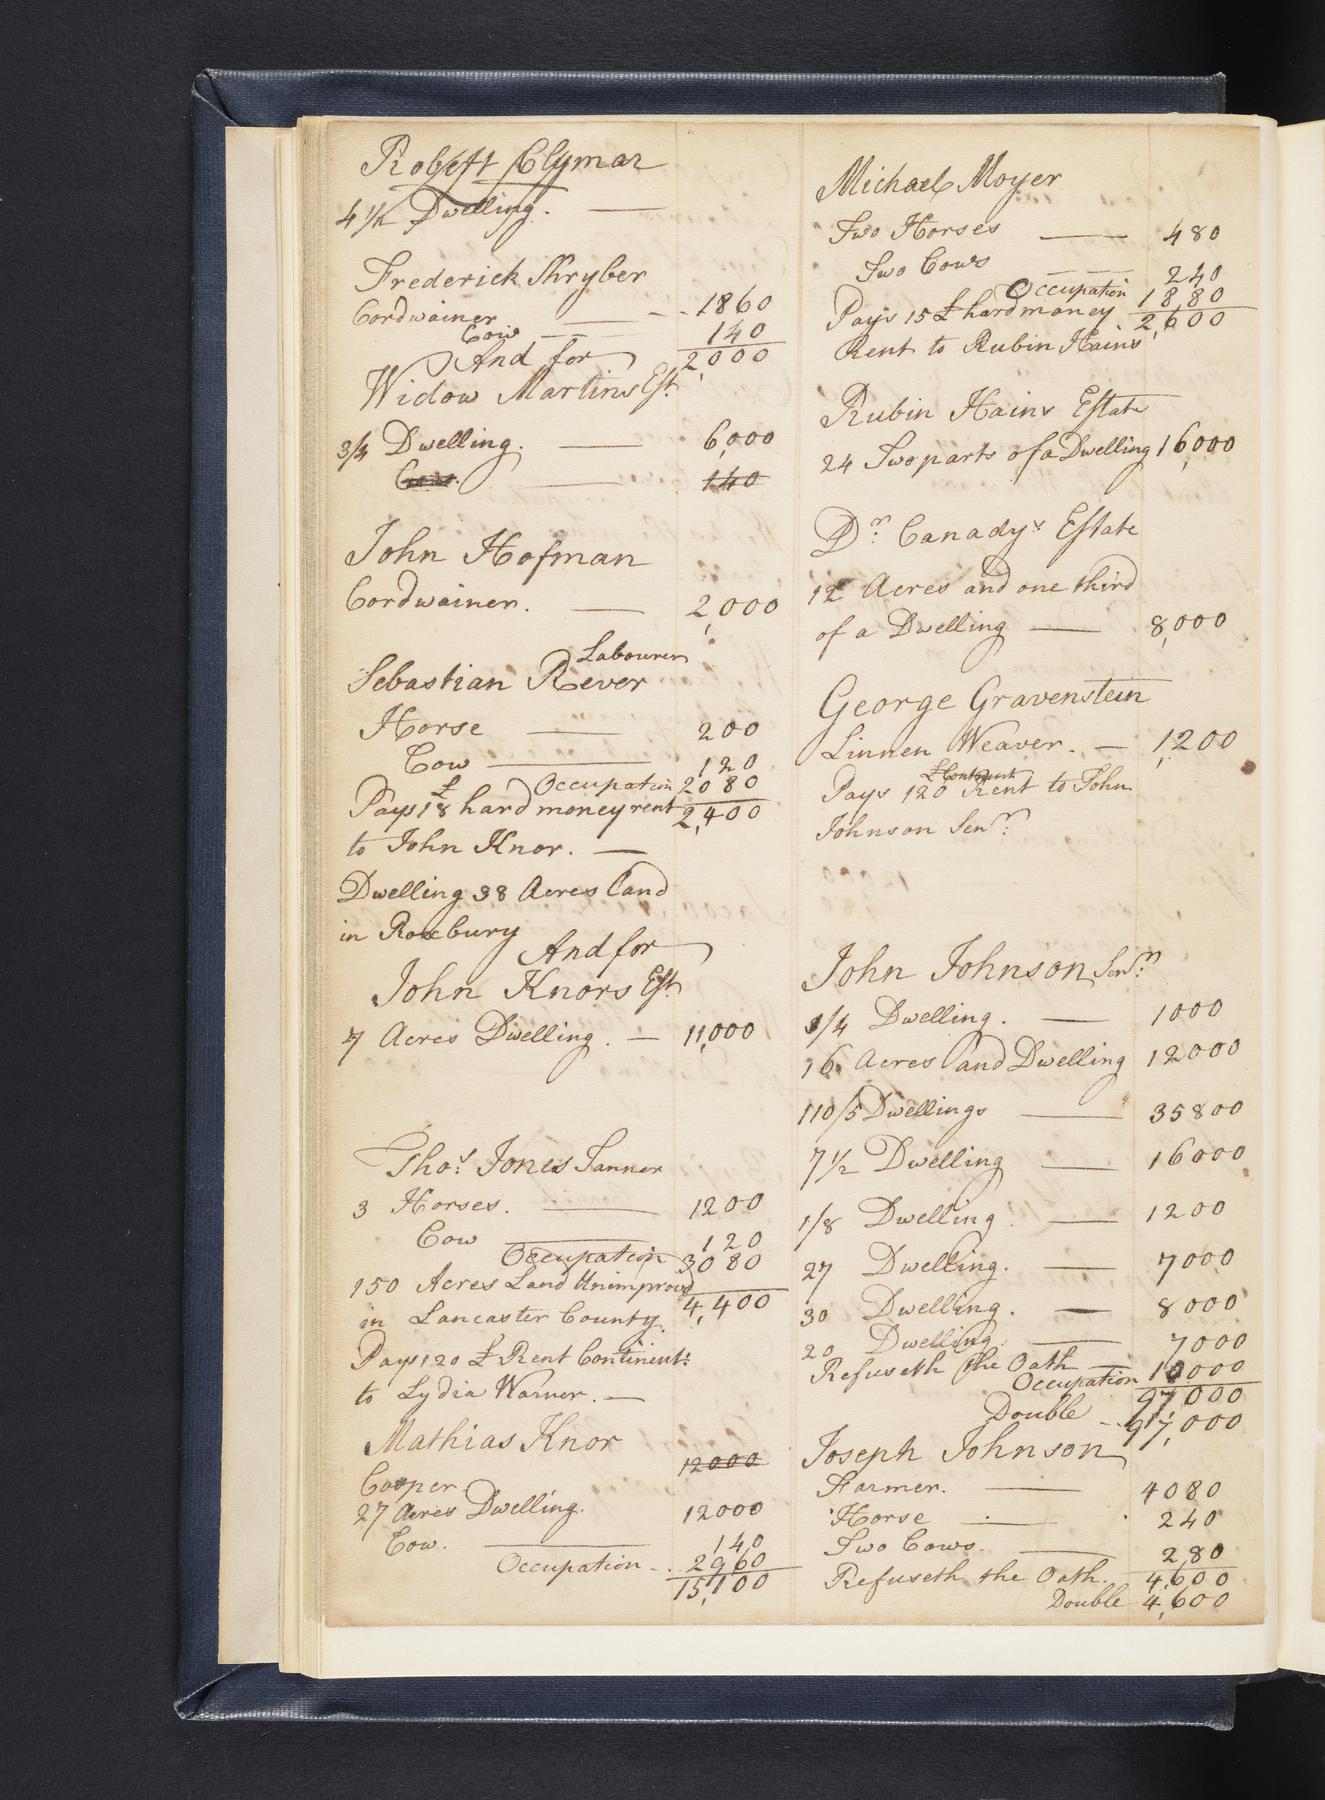 Robert Clymar
4 1/2 Dwelling. —
Frederick Shryber
Cordwainer — 1860
Cow — 140
And for 2,000
Widow Martins Est.
3/4 Dwelling. — 6,000
Cow. — 140
John Hofman
Cordwainer. — 2,000
Labourer
Sebastian Rever
Horse — 200
Cow — 120
Occupation 2080
Pays 18 £ hard money rent 2,400
to John Knor. —
Dwelling 38 Acres Land
in Roxbury
And for
John Knors Est.
7 Acres Dwelling. — 11,000
Thos. Jones Tanner
3 Horses. — 1200
Cow — 120
Occupation 3080
150 Acres Land Unimprovd 4,400
in Lancaster County.
Pays 120 £ Rent Continent:
to Lydia Warner. —
Mathias Knor
12000
Cooper
27 Acres Dwelling. 12000
Cow. — 140
Occupation - . 2960
15,100
Michael Moyer
Two Horses — 480
Two Cows — 240
Occupation 1880
Pays 15 £ hard money 2,600
Rent to Rubin Hains
Rubin Hains Estate
24 Two parts of a Dwelling 16,000
Dr. Canadys Estate
12 Acres and one third
of a Dwelling — 8,000
George Gravenstein
Linnen Weaver. — 1,200
Pays 120 £ Rent to John
Johnson Senr.
John Johnson Senr.
1/4 Dwelling. — 1000
16 Acres Land Dwelling 12000
110/5 Dwellings — 35800
7 1/2 Dwelling — 16000
1/8 Dwelling. — 1200
27 Dwelling. — 7000
30 Dwelling. — 8000
20 Dwelling. — 7000
Refuseth the Oath —
Occupation 10000
97,000
Double - - 97,000
Joseph Johnson
Farmer. — 4080
Horse — 240
Two Cows. — 280
Refuseth the Oath. 4,600
Double 4,600